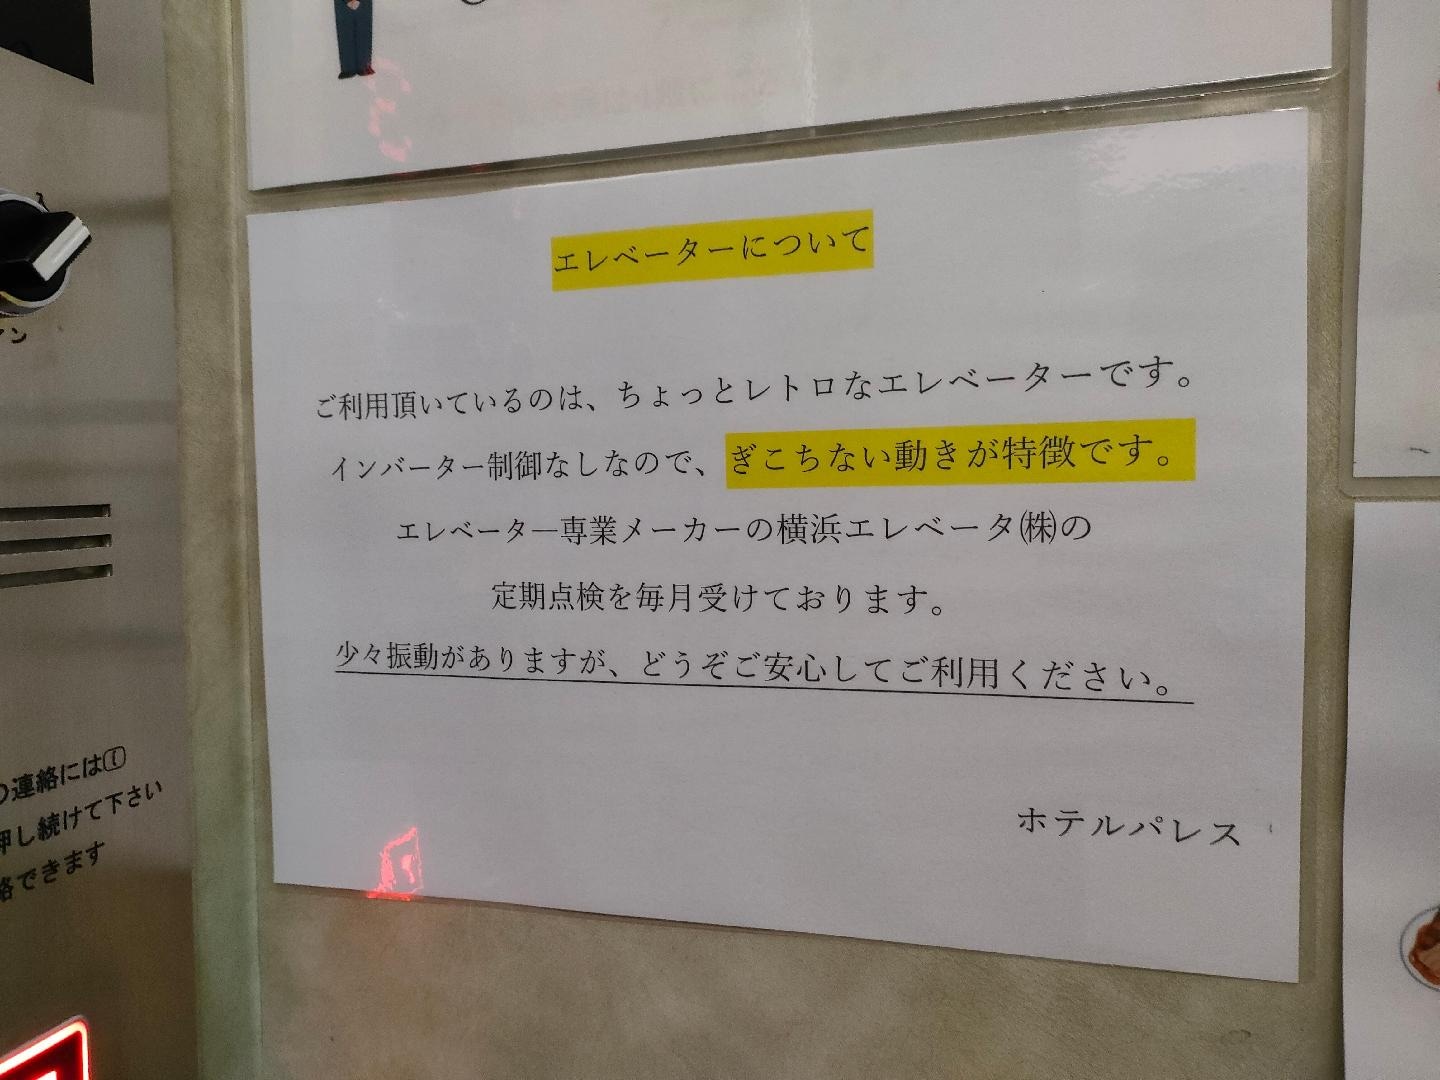 エレベーターについて
ご利用頂いているのは、ちょっとレトロなエレベーターです。
インバーター制御なしなので、ぎこちない動きが特徴です。
エレベーター専業メーカーの横浜エレベータ㈱の
定期点検を毎月受けております。
少々振動がありますが、どうぞご安心してご利用ください。
ホテルパレス
連絡には
押し続けて下さい
絡できます